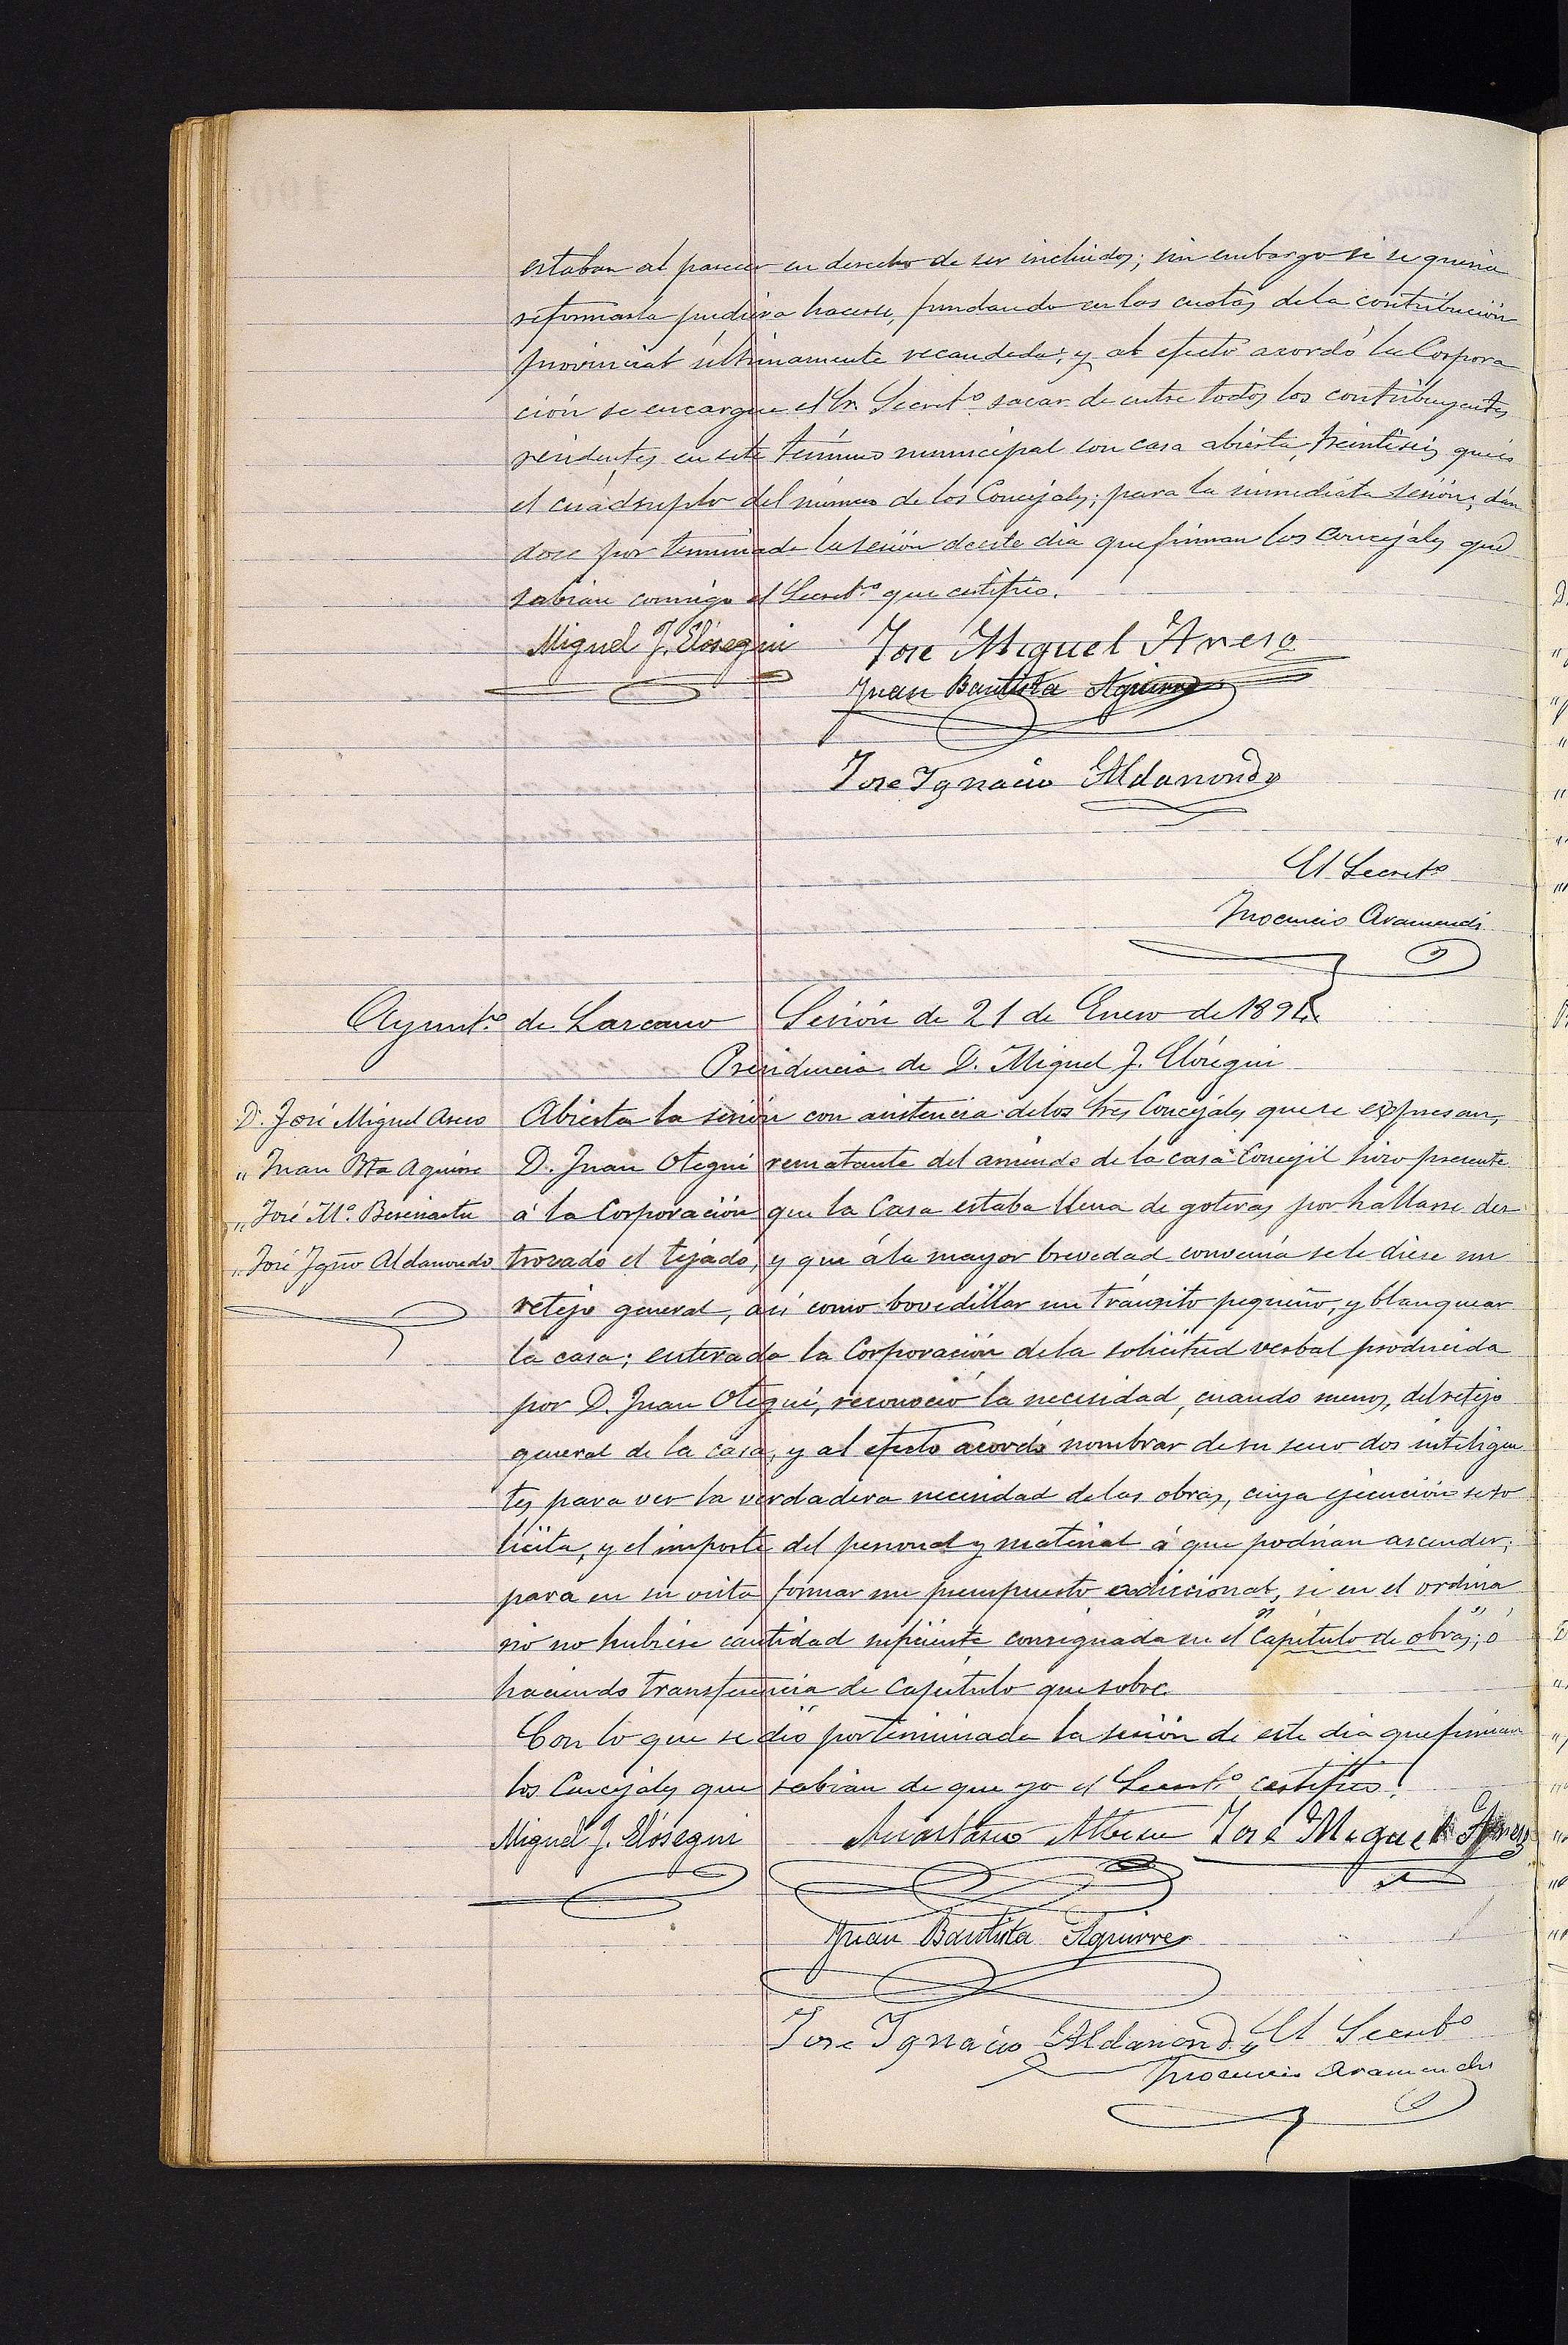 estaban al parecer en derecho de ser incluidos; sin embargo si se queria
reformarla pudiera hacerse, fundando en las cuotas dela contribución
provincial últimamente recaudada; y al efecto acordó la Corpora
ción se encargue el Sr. Secretº sacar de entre todos los contribuyentes
residentes en este término municipal con casa abierta, treintiseis que es
el cuádruplo del número de los Concejales; para la inmediata sesión, dán
dose por terminada la sesión deeste dia que firman los Concejales que
sabian conmigo el Secretº que certifico.
Miguel J. Elósegui Jose Miguel Areso
Juan Bautista Aguirre
Jose Ygnacio Aldanondo
El Secretº
Inocencio Aramendi
Ayuntº de Lazcano Sesión de 21 de Enero de 189
Presidencia de D. Miguel J. Elósegui
D. José Miguel Areso Abierta la sesión con asistencia delos tres Concejales que se expresan,
" Juan Bta Aguirre D. Juan Otegui rematante del arriendo de la casa Concejil hizo presente
" José Mª. á la Corporación que la Casa estaba llena de goteras por hallarse des
" José Ygnº Aldanondo trozado el tejado, y que á la mayor brevedad convenía se le diese un
retejo general, así como bovedillar un tránsito pequeño, y blanquear
la casa; enterada la Corporación dela solicitud verbal producida
por D. Juan Otegui, reconoció la necesidad, cuando menos, del retejo
general de la casa, y al efecto acordó nombrar de su seno dos inteligen
tes para ver la verdadera necesidad delas obras, cuya ejecución se so
licita, y el importe del personal y material á que podrian ascender;
para en su vista formar un presupuesto adiccional, si en el ordina
rio no hubiese cantidad suficiente consignada en el "Capítulo de obras"; ó
haciendo transferencia de Capítulo que sobre.
Con lo que se dió por terminada la sesión de este dia que firman
los Concejales que sabian de que yo el Secretº certifico.
Miguel J. Elósegui Anastasio José Miguel Areso
Juan Bautista Aguirre
Jose Ygnacio Aldanondo El Secretº
Inocencio Aramendi